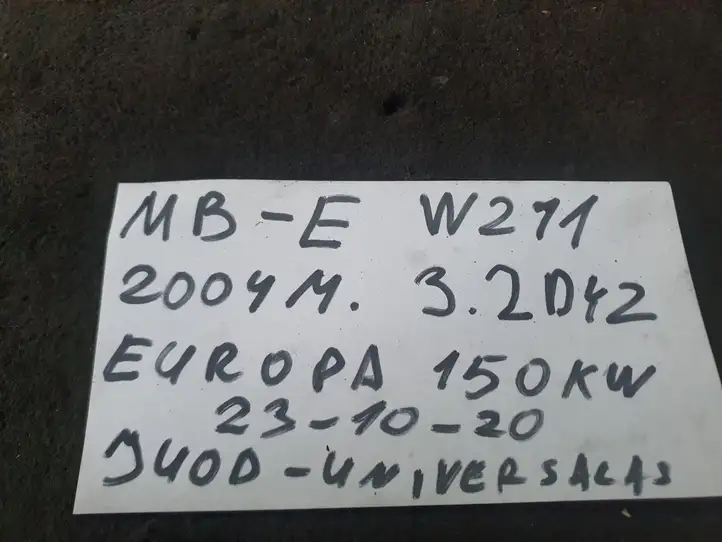 MB-E W211
2004M. 3.2D42
EUROPA 150KW
23-10-20
JUOD-UNIVERSALAS